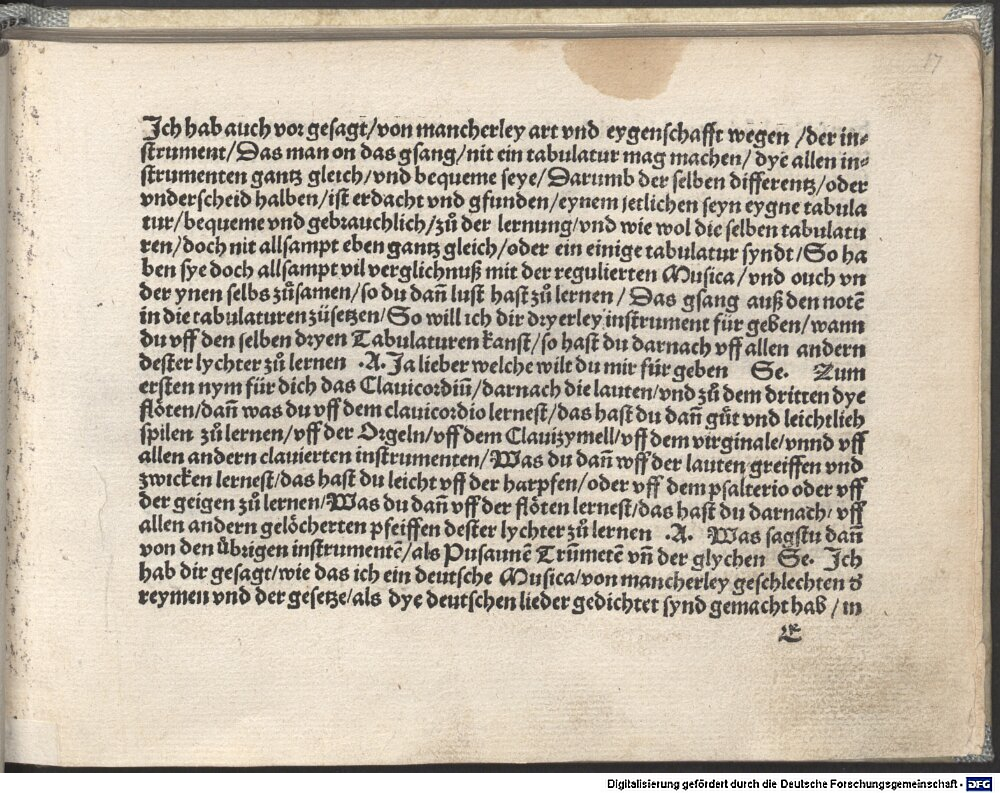 17
Ich hab auch vor gesagt/von mancherley art vnd eygenschafft wegen /der in⸗
strument/Das man on das gsang/nit ein tabulatur mag machen/ dye allen in⸗
strumenten gantz gleich/vnd bequeme seye/Darumb der selben differentz/oder
vnderscheid halben/ist erdacht vnd gfunden/eynem jetlichen seyn eygne tabula
tur/bequeme vnd gebrauchlich/zů der lernung/vnd wie wol die selben tabulatu
ren/doch nit allsampt eben gantz gleich/oder ein einige tabulatur syndt/So ha
ben sye doch allsampt vil verglichnuß mit der regulierten Musica/vnd ouch vn
der ynen selbs zůsamen/so du dañ lust hast zů lernen/ Das gsang auß den notē
in die tabulaturen züsetzen/So will ich dir dryerley instrument für geben/wann
du vff den selben dryen Tabulaturen kanst/so hast du darnach vff allen andern
dester lychter zů lernen .A. Ja lieber welche wilt du mir für geben Se. Zum
ersten nym für dich das Clauicordiū/darnach die lauten/vnd zů dem dritten dye
flöten/dañ was du vff dem clauicordio lernest/das hast du dañ gůt vnd leichtlich
spilen zů lernen/vff der Orgeln/vff dem Clauizymell/vff dem virginale/vnnd vff
allen andern clauierten instrumenten/Was du dañ wff der lauten greiffen vnd
zwicken lernest/das hast du leicht vff der harpfen/oder vff dem psalterio oder vff
der geigen zů lernen/Was du dañ vff der flöten lernest/das hast du darnach/ vff
allen andern gelöcherten pfeiffen dester lychter zů lernen .A. Was sagstu dañ
von den übrigen instrumentē/als Pusaunē Trūmetē vñ der glychen Se. Ich
hab dir gesagt/wie das ich ein deutsche Musica/von mancherley geschlechten d
reymen vnd der gesetze/als dye deutschen lieder gedichtet synd gemacht hab /in
E
Digitalisierung gefördert durch die Deutsche Forschungsgemeinschaft - DFG